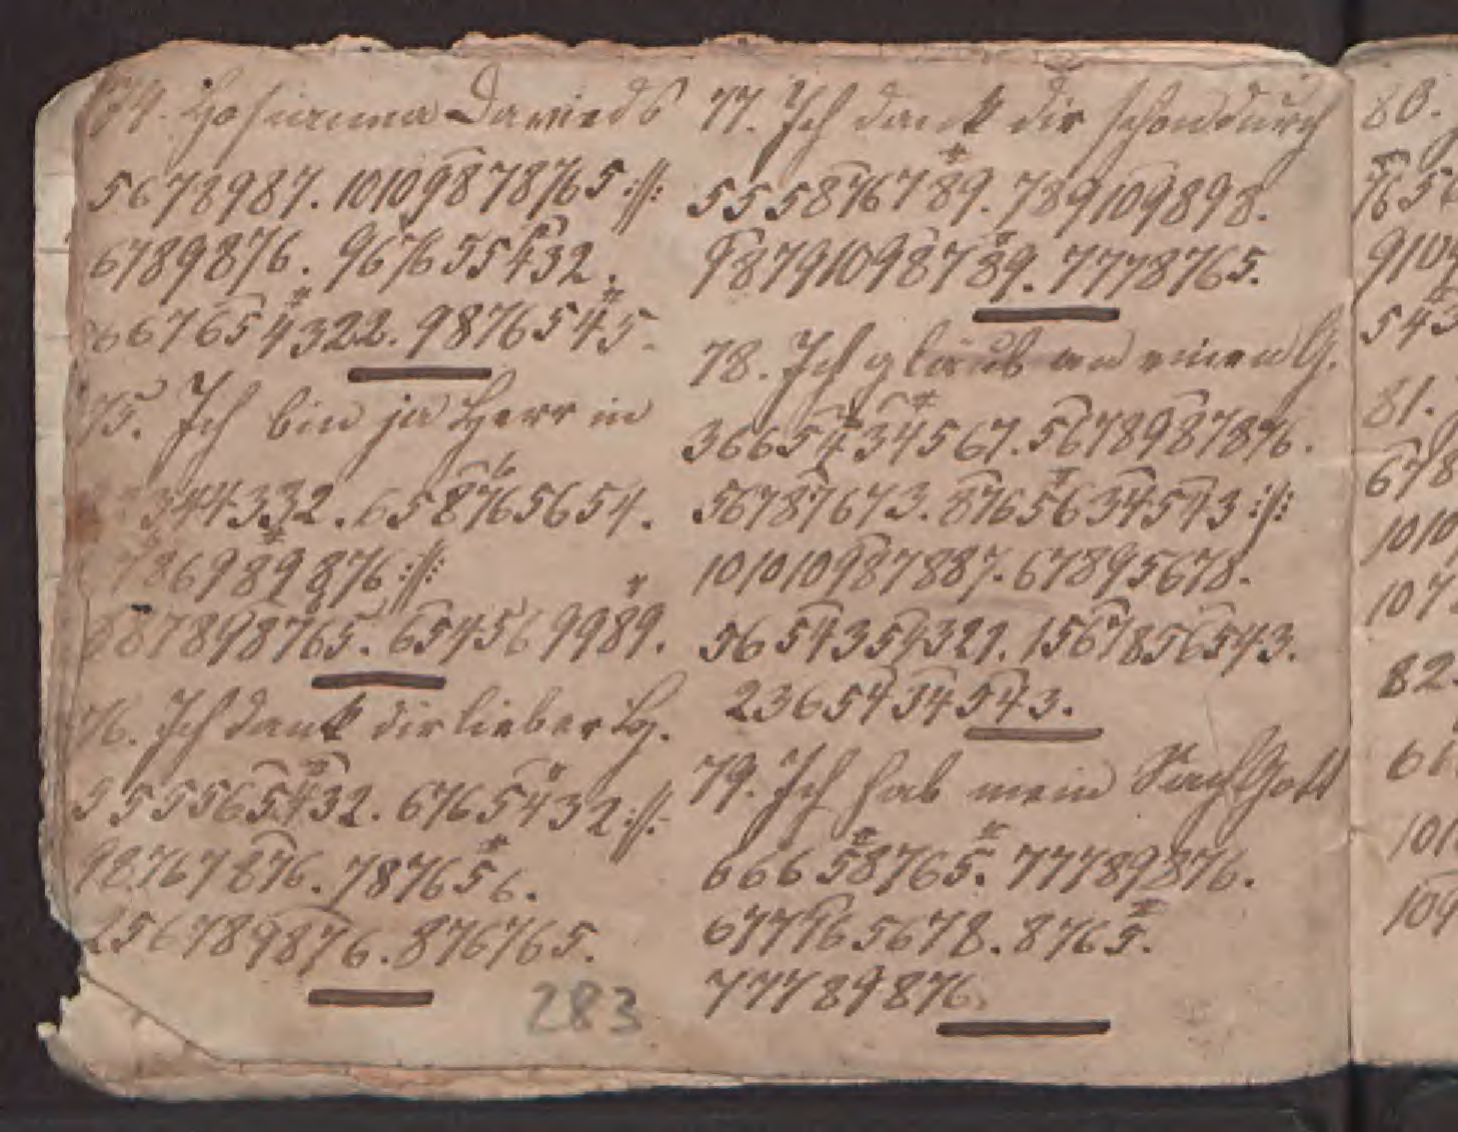 74. Hosianna Davieds
5678987. 10109878765://:
6789876. 967655432.
667654322. 9876545.
75. Ich bin ja Herr in
344332. 658765654.
786989876://:
687898765. 654569989.
76. Ich dank dir lieber H.
555565432. 6765432://:
98767876. 787656.
256789876. 876765.
283
77. Ich dank dir schon durch
555876789. 789109898.
98791098789. 7778765.
78. Ich glaub an einen G.
3665434567. 5678987876.
56787673. 8765634543://:
10101098 7887. 67895678.
5654354321. 1567856543.
23654345 43.
79. Ich hab mein Sach Gott
66658765. 77789876.
677765678. 8765.
77789876.
80.
7656
9109
543
81.
678
1010
107
82.
66
101
109